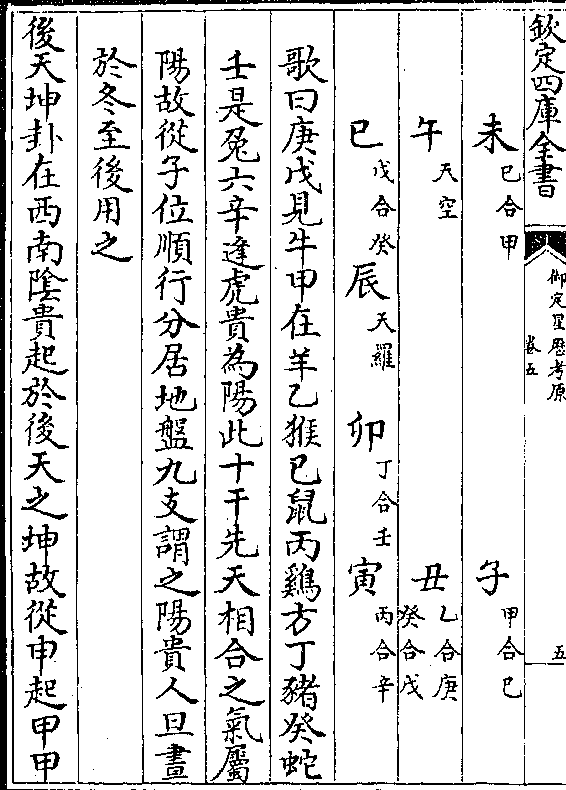 欽定四庫全書
御定星歷考原
卷五
五
未
巳合甲
子
甲合巳
午
天空
丑
乙合庚
癸合戊
巳
戊合癸
辰
天羅
卯
丁合壬
寅
丙合辛
歌曰庚戊見牛甲在羊乙猴巳鼠丙鷄方丁豬癸蛇
壬是兔六辛逢虎貴為陽此十干先天相合之氣屬
陽故從子位順行分居地盤九支謂之陽貴人旦晝
於冬至後用之
後天坤卦在西南陰貴起於後天之坤故從申起甲甲